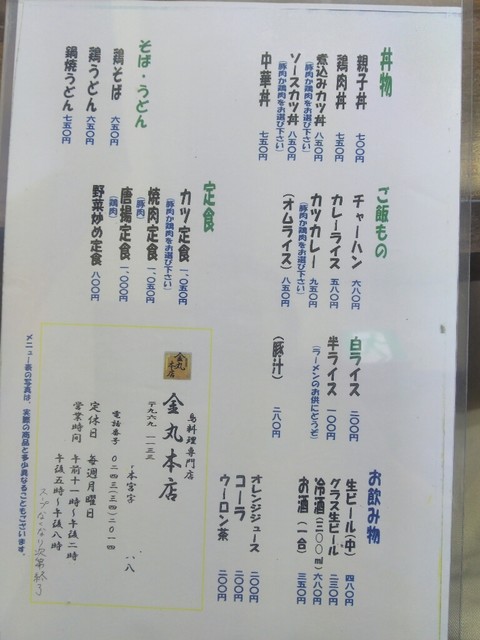 丼物
親子丼 七〇〇円
鶏肉丼 七五〇円
煮込みカツ丼 八五〇円
(豚肉か鶏肉をお選び下さい)
ソースカツ丼 八五〇円
(豚肉か鶏肉をお選び下さい)
中華丼 七五〇円
そば・うどん
鶏そば 六五〇円
鶏うどん 六五〇円
鍋焼うどん 七五〇円
ご飯もの
チャーハン 六八〇円
カレーライス 五八〇円
カツカレー 九五〇円
(豚肉か鶏肉をお選び下さい)
(オムライス) 八五〇円
定食
カツ定食 一、〇五〇円
(豚肉か鶏肉をお選び下さい)
焼肉定食 一、〇五〇円
(豚肉)
唐揚定食 一、〇〇〇円
(鶏肉)
野菜炒め定食 八〇〇円
白ライス 二〇〇円
半ライス 一〇〇円
(ラーメンのお供にどうぞ)
(豚汁) 二八〇円
お飲み物
生ビール(中) 四八〇円
グラス生ビール 二三〇円
冷酒(三〇〇㎖) 六八〇円
お酒(一合) 三五〇円
オレンジジュース 二〇〇円
コーラ 二〇〇円
ウーロン茶 二〇〇円
金丸本店
鳥料理専門店
金丸本店
〒九六九 一一三三
本宮字 一八
電話番号 〇二四三(三四)二〇一四
定休日 毎週月曜日
営業時間 午前十一時〜午後二時
午後五時〜午後八時
スープなくなり次第終了
メニュー表の写真は、実際の商品と多少異なることもございます。